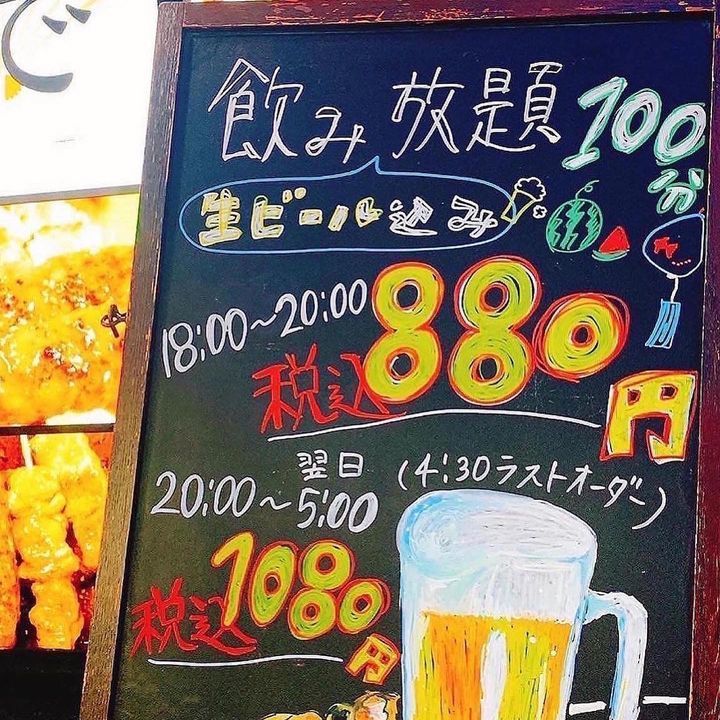 で
飲み放題 100分
生ビール込み
18:00～20:00
税込880円
20:00～翌日5:00 (4:30ラストオーダー)
税込1080円